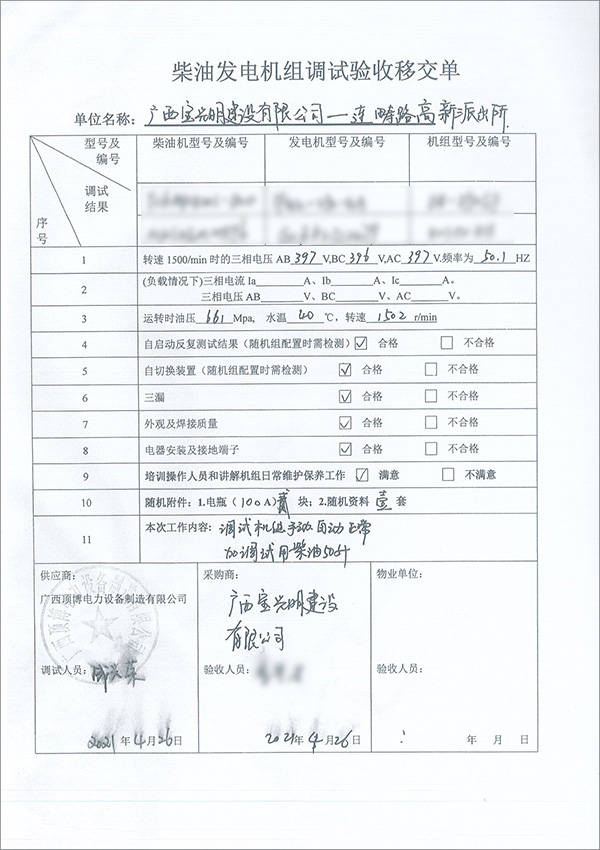 柴油发电机组调试验收移交单
单位名称：广西宝兴明建设有限公司—连畴路高新派出所
型号及编号 调试结果 序号 柴油机型号及编号 发电机型号及编号 机组型号及编号
1 转速 1500/min 时的三相电压 AB 397 V,BC 396 V,AC 397 V.频率为 50.1 HZ
2 (负载情况下)三相电流 Ia________A、Ib________A、Ic________A。
三相电压 AB________V、BC________V、AC________V。
3 运转时油压 661 Mpa, 水温 40 ℃，转速 1502 r/min
4 自启动反复测试结果（随机组配置时需检测） ☑ 合格 □ 不合格
5 自切换装置（随机组配置时需检测） ☑ 合格 □ 不合格
6 三漏 ☑ 合格 □ 不合格
7 外观及焊接质量 ☑ 合格 □ 不合格
8 电器安装及接地端子 ☑ 合格 □ 不合格
9 培训操作人员和讲解机组日常维护保养工作 ☑ 满意 □ 不满意
10 随机附件：1.电瓶（100A）贰 块；2.随机资料 壹 套
11 本次工作内容：调试机组手动自动正常
加调试用柴油50升
供应商： 采购商： 物业单位：
广西顶博电力设备制造有限公司 广西宝兴明建设
有限公司
调试人员： 验收人员： 验收人员：
2021 年 4 月 26 日 2021 年 4 月 26 日 年 月 日